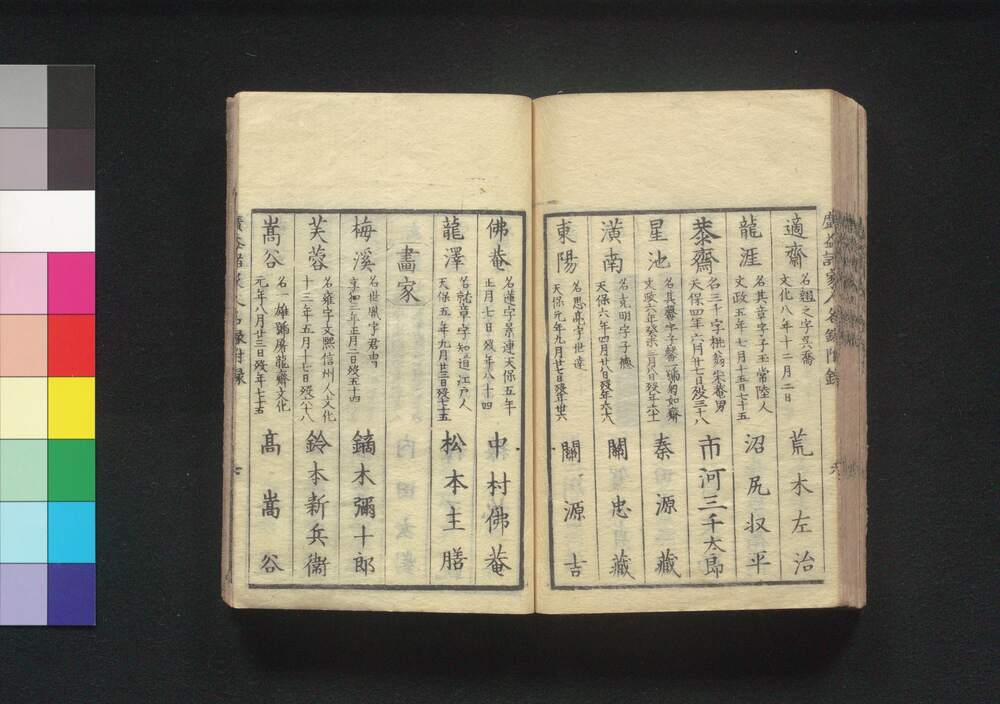 適齋 名翹之字 文化八年十二月二日 荒木左治
龍涯 名其章字子玉常陸人 文政五年七月十五日七十五 沼尻収平
恭齋 名三千字桃翁米菴男 天保四年六月廿七日歿三十八 市河三千太郎
星池 名其馨字子馨 文政六年癸未 歿年六十一 秦源藏
潢南 名克明字子德 天保六年四月廿八日歿年六十八 關忠藏
東陽 名思亮字世達 天保元年九月廿七日歿年卅六 關源吉
佛菴 名蓮字景連天保五年 正月七日歿年八十四 中村佛菴
龍澤 章字知道江戸人 天保五年九月廿三日歿七十五 松本主膳
畫家
梅溪 名世胤字君冑 享和三年正月二日歿五十四 鏑木彌十郎
芙蓉 名雍字文熙信州人文化 十三年五月十七日歿六十八 鈴木新兵衞
嵩谷 名一雄號屠龍齋文化 元年八月廿三日歿年七十五 高嵩谷